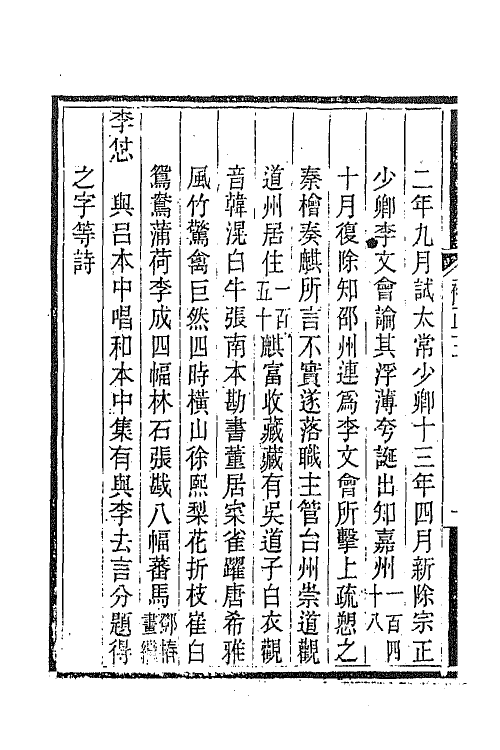 二年九月試太常少卿十三年四月新除宗正
少卿李文會論其浮薄夸誕出知嘉州一百四十八
十月復除知邵州連爲李文會所擊上疏愬之
秦檜奏麒所言不實遂落職主管台州崇道觀
道州居住一百五十麒富收藏藏有吳道子白衣觀
音韓滉白牛張南本勘書董居寀雀躍唐希雅
風竹驚禽巨然四時橫山徐熙梨花折枝崔白
鴛鴦蒲荷李成四幅林石張戡八幅蕃馬鄧椿畫繼
李恷　與呂本中唱和本中集有與李去言分題得
之字等詩